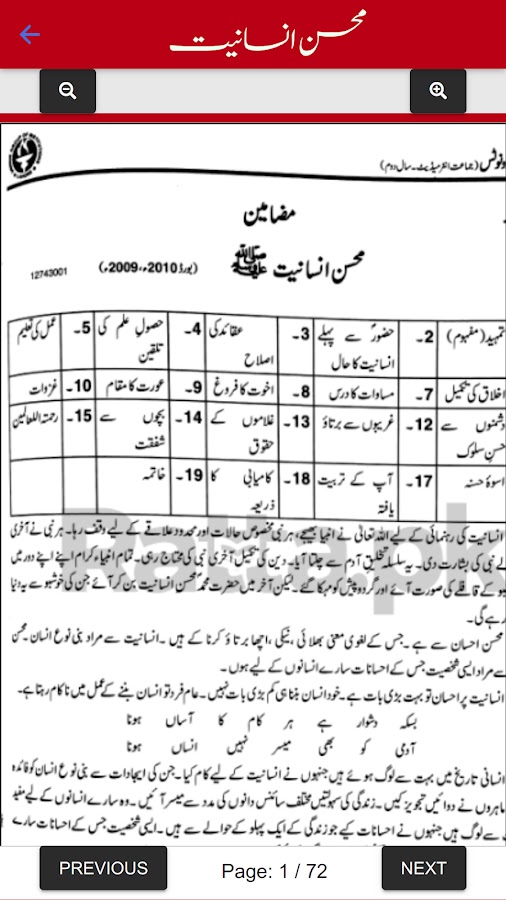 محسن انسانیت
نوٹس (جماعت انٹرمیڈیٹ۔ سال دوم)
مضامین
محسن انسانیت ﷺ (بورڈ 2010ء، 2009ء)
12743001
تمہید (مفہوم) 2۔ حضورؐ سے پہلے انسانیت کا حال 3۔ عقائد کی اصلاح 4۔ حصول علم کی تلقین 5۔ عمل کی تعلیم
اخلاق کی تکمیل 7۔ مساوات کا درس 8۔ اخوت کا فروغ 9۔ عورت کا مقام 10۔ غزوات
دشمنوں سے حسن سلوک 12۔ غریبوں سے برتاؤ 13۔ غلاموں کے حقوق 14۔ بچوں سے شفقت 15۔ رحمتہ اللعالمین
اسوۂ حسنہ 17۔ آپ کے تربیت یافتہ 18۔ کامیابی کا ذریعہ 19۔ خاتمہ
Ratta.pk
انسانیت کی رہنمائی کے لیے اللہ تعالیٰ نے انبیا بھیجے، ہر نبی مخصوص حالات اور محدود علاقے کے لیے وقف رہا۔ ہر نبی نے آخری
نبی کی بشارت دی۔ یہ سلسلہ تخلیق آدم سے چلتا آیا۔ دین کی تکمیل آخری نبی کی محتاج رہی۔ تمام انبیاء کرام اپنے اپنے دور میں
کے قافلے کی صورت آئے اور گرد و پیش کو مہکا گئے۔ لیکن آخر میں حضرت محمدؐ محسن انسانیت بن کر آئے جن کی خوشبو سے یہ دنیا
رہے گی۔
محسن احسان سے ہے۔ جس کے لغوی معنی بھلائی، نیکی، اچھا برتاؤ کرنا کے ہیں۔ انسانیت سے مراد بنی نوع انسان۔ محسن
سے مراد ایسی شخصیت جس کے احسانات سارے انسانوں کے لیے ہوں۔
انسانیت پر احسان تو بہت بڑی بات ہے۔ خود انسان بننا ہی کم بڑی بات نہیں۔ عام فرد تو انسان بننے کے عمل میں ناکام رہتا ہے۔
بسکہ دشوار ہے ہر کام کا آساں ہونا
آدمی کو بھی میسر نہیں انساں ہونا
انسانی تاریخ میں بہت سے لوگ ہوئے ہیں جنہوں نے انسانیت کے لیے کام کیا۔ جن کی ایجادات سے بنی نوع انسان کو فائدہ
ماہروں نے دوائیں تجویز کیں۔ زندگی کی سہولتیں مختلف سائنس دانوں کی مدد سے میسر آئیں۔ وہ سارے انسانوں کے لیے مفید
سے لوگ ہیں جنہوں نے احسانات کیے جو زندگی کے ایک پہلو کے حوالے سے ہیں۔ ایسی شخصیت جس کے احسانات سارے
PREVIOUS
Page: 1 / 72
NEXT